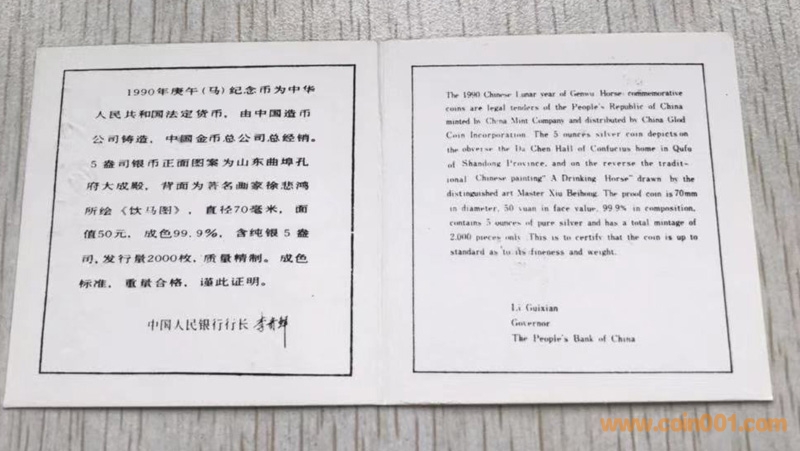 1990年庚午(马)纪念币为中华
人民共和国法定货币，由中国造币
公司铸造，中国金币总公司总经销。
5盎司银币正面图案为山东曲埠孔
府大成殿，背面为著名曲家徐悲鸿
所绘《饮马图》，直径70毫米，面
值50元，成色99.9%，含纯银5盎
司，发行量2000枚，质量精制。成色
标准，重量合格，谨此证明。
中国人民银行行长 李贵鲜
The 1990 Chinese Lunar year of Genwu Horse: commemorative
coins are legal tenders of the People's Republic of China
minted by China Mint Company and distributed by China Glod
Coin Incorporation. The 5 ounces silver coin depicts on
the obverse the Da Chen Hall of Confucius home in Qufu
of Shandong Province, and on the reverse the tradit-
ional Chinese painting "A Drinking Horse" drawn by the
distinguished art Master Xiu Beihong. The proof coin is 70mm
in diameter, 50 yuan in face value, 99.9% in composition,
contains 5 ounces of pure silver and has a total mintage of
2,000 pieces only. This is to certify that the coin is up to
standard as to its fineness and weight.
Li Guixian
Governor
The People's Bank of China
www.coin001.com